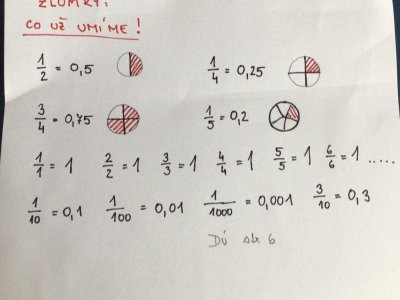 ZLOMKY:
CO UŽ UMÍME!
1/2 = 0,5 1/4 = 0,25
3/4 = 0,75 1/5 = 0,2
1/1 = 1 2/2 = 1 3/3 = 1 4/4 = 1 5/5 = 1 6/6 = 1 .....
1/10 = 0,1 1/100 = 0,01 1/1000 = 0,001 3/10 = 0,3
DÚ str 6